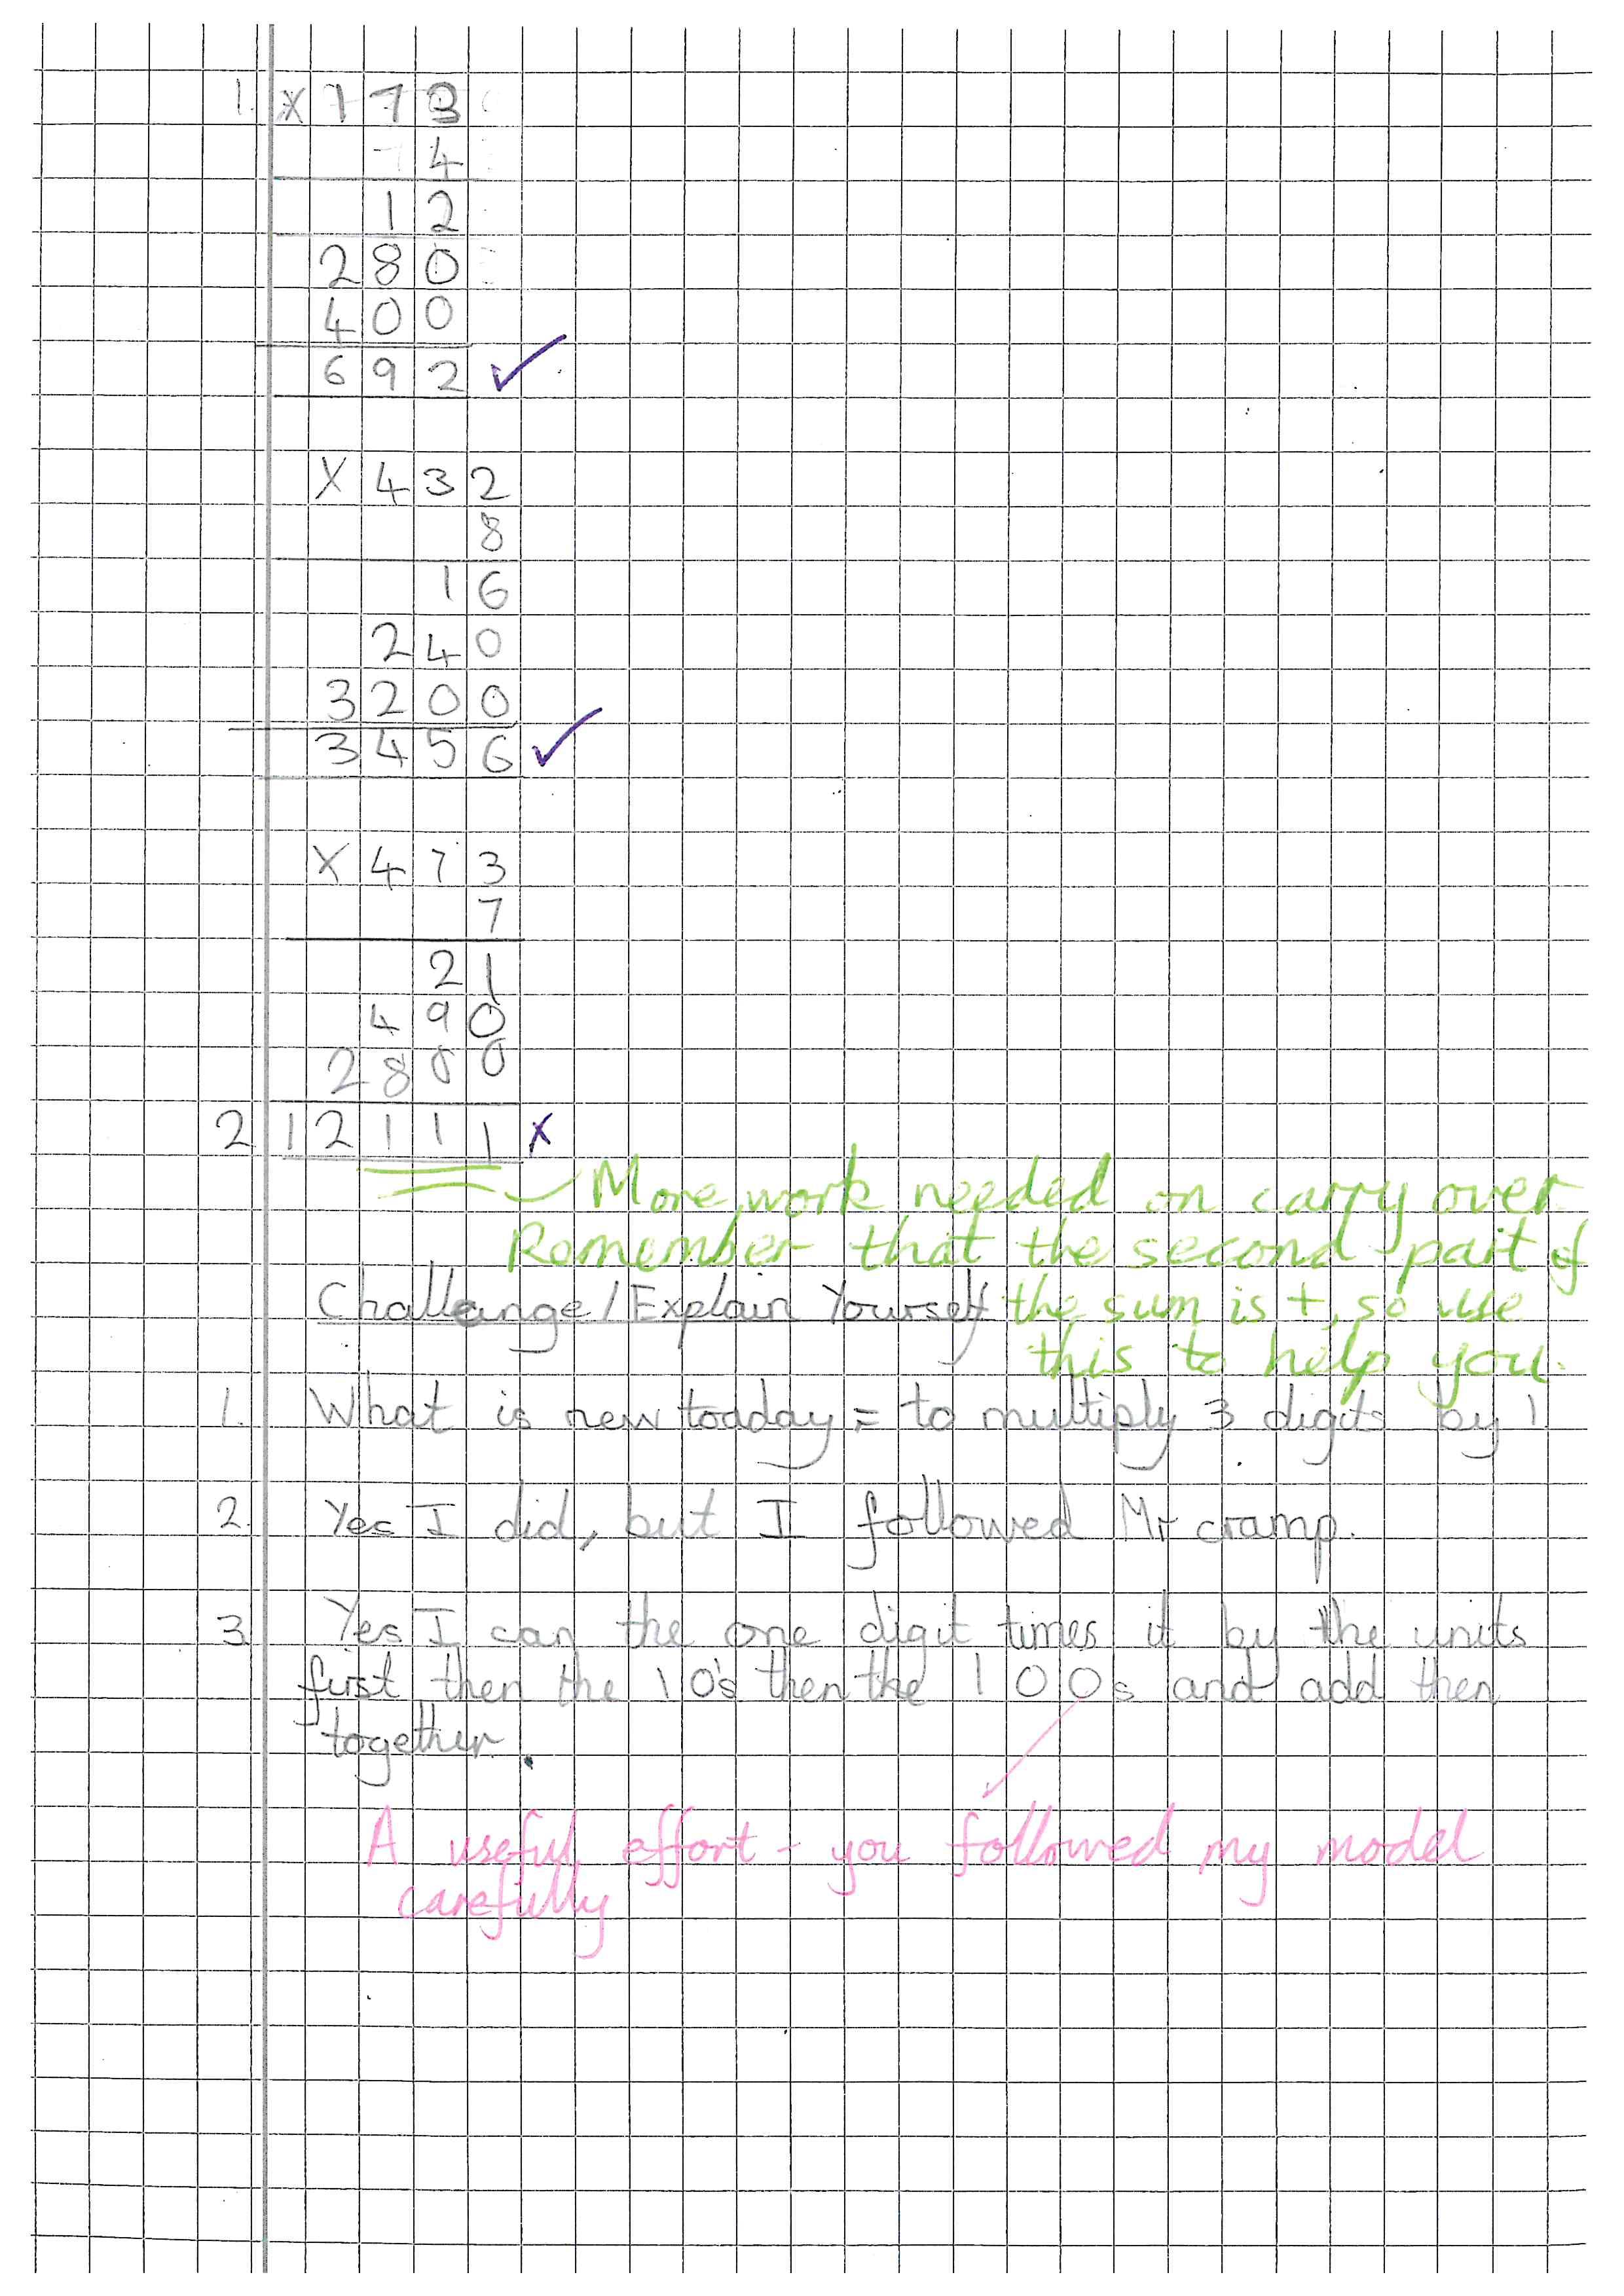 1. x 1 7 3
4
1 2
2 8 0
4 0 0
6 9 2 ✓
x 4 3 2
8
1 6
2 4 0
3 2 0 0
3 4 5 6 ✓
x 4 7 3
7
2 1
4 9 0
2 8 0 0
2 1 2 1 1 1 x
More work needed on carry over.
Remember that the second part of
the sum is +, so use
this to help you.
Challenge / Explain Yourself
1. What is new toaday = to multiply 3 digits by 1
2. Yes I did, but I followed Mr cramp.
3 Yes I can the one digit times it by the units
first then the 10's then the 100s and add then
together.
A useful effort - you followed my model
carefully